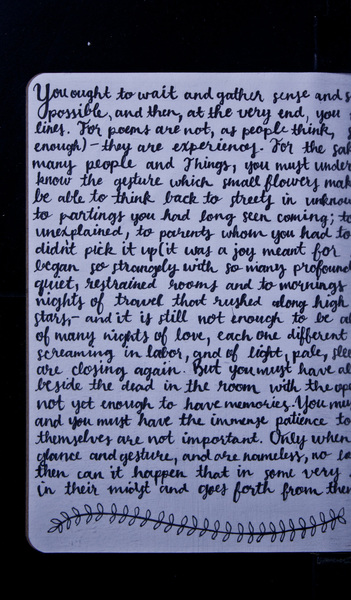 You ought to wait and gather sense and s
possible, and then, at the very end, you
lines. For poems are not, as people think,
enough) - they are experiences. For the sak
many people and Things, you must under
know the gesture which small flowers mak
be able to think back to streets in unknow
to partings you had long seen coming; to
unexplained, to parents whom you had to
didn't pick it up (it was a joy meant for
began so strangely with so many profound
quiet, restrained rooms and to mornings
nights of travel that rushed along high
stars, - and it is still not enough to be al
of many nights of love, each one different
screaming in labor, and of light, pale, slee
are closing again. But you must have al
beside the dead in the room with the ope
not yet enough to have memories. You mu
and you must have the immense patience to
themselves are not important. Only when
glance and gesture, and are nameless, no lo
then can it happen that in some very
in their midst and goes forth from them